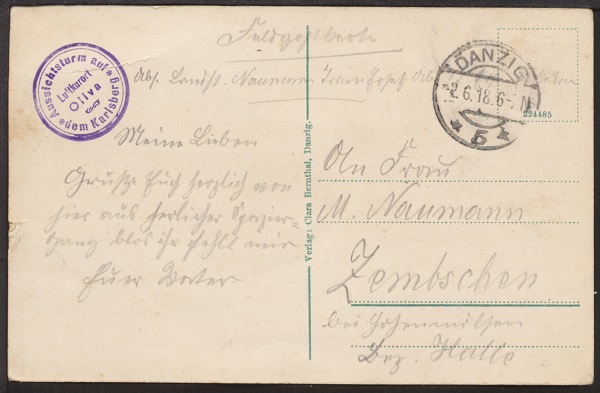 Feldpostkarte
Abs. Landst. Naumann
Aussichtsturm auf dem Karlsberg
Luftkurort
Oliva
DANZIG
2.6.18.6-7N
5
224485
Meine Lieben
Grüsse Euch herzlich von
hier aus herlicher Spazier-
gang blos ihr fehlt mir
Euer Vater
Verlag: Clara Bernthal, Danzig.
An Frau
M. Naumann
Zembschen
bei Hohenmölsen
Bez. Halle